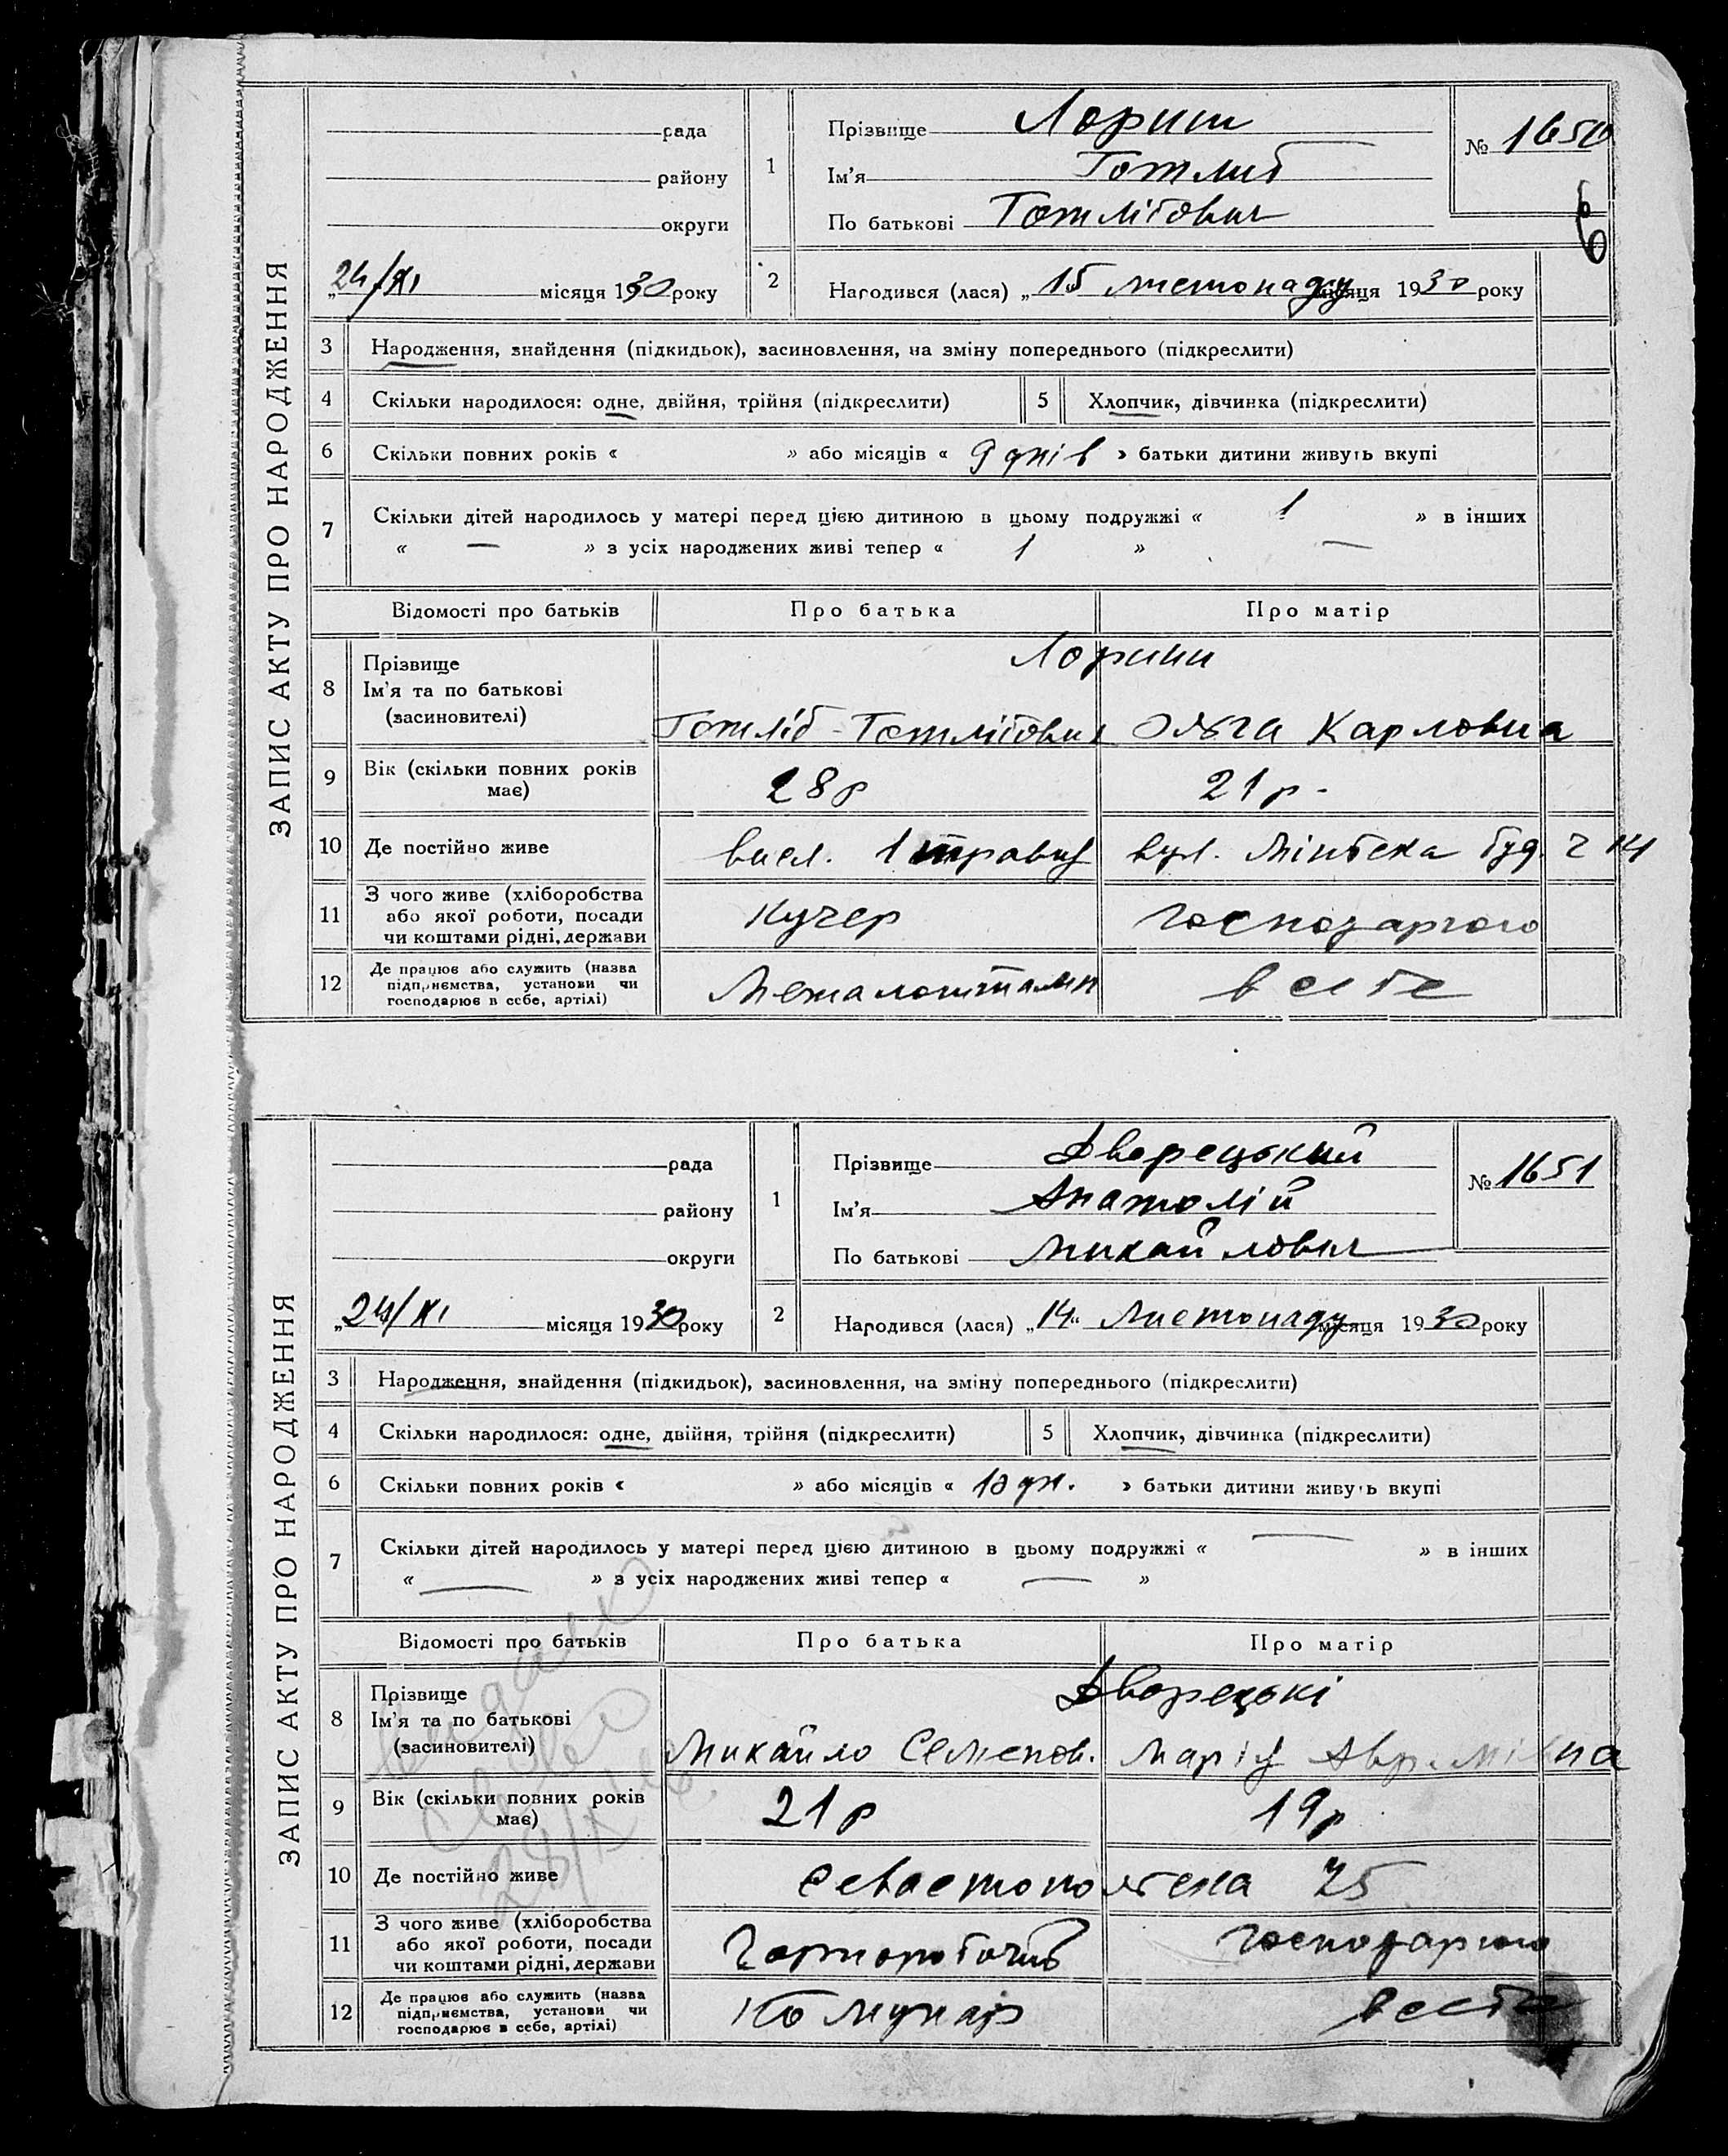 ЗАПИС АКТУ ПРО НАРОДЖЕННЯ
рада
району
округи
24/XI місяця 1930 року
1
Прізвище Лориш
Ім'я Готлиб
По батькові Готлібович
№ 1650
6
2
Народився (лася) „15 листопаду місяця 1930 року
3 Народження, знайдення (підкидьок), засиновлення, на зміну попереднього (підкреслити)
4 Скільки народилося: одне, двійня, трійня (підкреслити)
5 Хлопчик, дівчинка (підкреслити)
6 Скільки повних років « » або місяців « 9 днів » батьки дитини живуть вкупі
7 Скільки дітей народилось у матері перед цією дитиною в цьому подружжі « 1 » в інших
« — » з усіх народжених живі тепер « 1 » —
Відомості про батьків Про батька Про матір
8 Прізвище
Ім'я та по батькові
(засновителі)
Готліб Готлібович Ольга Карловна
9 Вік (скільки повних років має) 28 р 21 р.
10 Де постійно живе висл. 1 травня вул. Мінська буд. 14
11 З чого живе (хліборобства або якої роботи, посади чи коштами рідні, держави
Кучер господаргою
12 Де працює або служить (назва підприємства, установи чи господарює в себе, артілі)
в себе
ЗАПИС АКТУ ПРО НАРОДЖЕННЯ
рада
району
округи
„24/XI місяця 1930 року
1
Прізвище Дворецький
Ім'я Анатолій
По батькові Михайлович
№ 1651
2
Народився (лася) „14“ Листопаду місяця 1930 року
3 Народження, знайдення (підкидьок), засиновлення, на зміну попереднього (підкреслити)
4 Скільки народилося: одне, двійня, трійня (підкреслити)
5 Хлопчик, дівчинка (підкреслити)
6 Скільки повних років « » або місяців « 10 дн. » батьки дитини живуть вкупі
7 Скільки дітей народилось у матері перед цією дитиною в цьому подружжі « — » в інших
« — » з усіх народжених живі тепер « — »
Відомості про батьків Про батька Про матір
8 Прізвище
Ім'я та по батькові
(засиновителі)
Дворецькі
Михайло Семенов. Марія
9 Вік (скільки повних років має) 21 р 19 р
10 Де постійно живе Севастопольска 25
11 З чого живе (хліборобства або якої роботи, посади чи коштами рідні, держави
Чорноробочий господаргою
12 Де працює або служить (назва підприємства, установи чи господарює в себе, артілі)
Комунар в себе